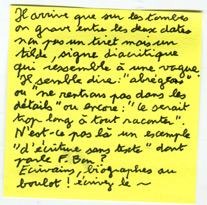 Il arrive que sur les tombes
on grave entre les deux dates
non pas un tiret mais un
tilde, signe diacritique
qui ressemble à une vague.
Il semble dire : "abrégeons"
ou "ne rentrons pas dans les
détails" ou encore : "ce serait
trop long à tout raconter".
N'est-ce pas là un exemple
"d'écriture sans texte" dont
parle F. Bon ?
Écrivains, biographes au
boulot ! écrivez le ~